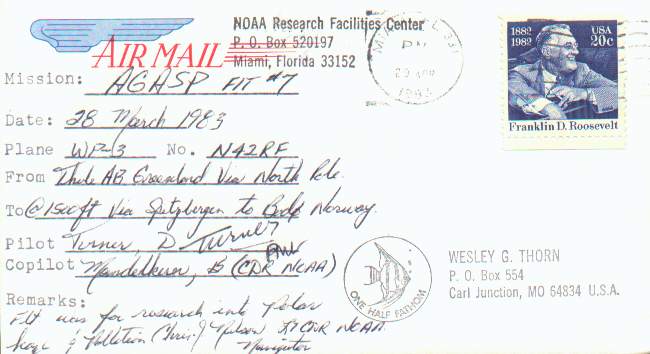 NOAA Research Facilities Center
P. O. Box 520197
Miami, Florida 33152
AIR MAIL
MIAMI, FL 331
PM
1983
1882
1982
USA
20c
Franklin D. Roosevelt
Mission: AGASP FLT #7
Date: 28 March 1983
Plane WP-3 No. N42RF
From Thule AB Greenland Via North Pole
To @ 1500ft Via Spitzbergen to Bodo Norway.
Pilot Turner, D Turner
Copilot (CDR NOAA)
ONE HALF FATHOM
WESLEY G. THORN
P. O. Box 554
Carl Junction, MO 64834 U.S.A.
Remarks:
Flt was for research into Polar
haze & Pollution Nelson CDR NOAA
Navigator